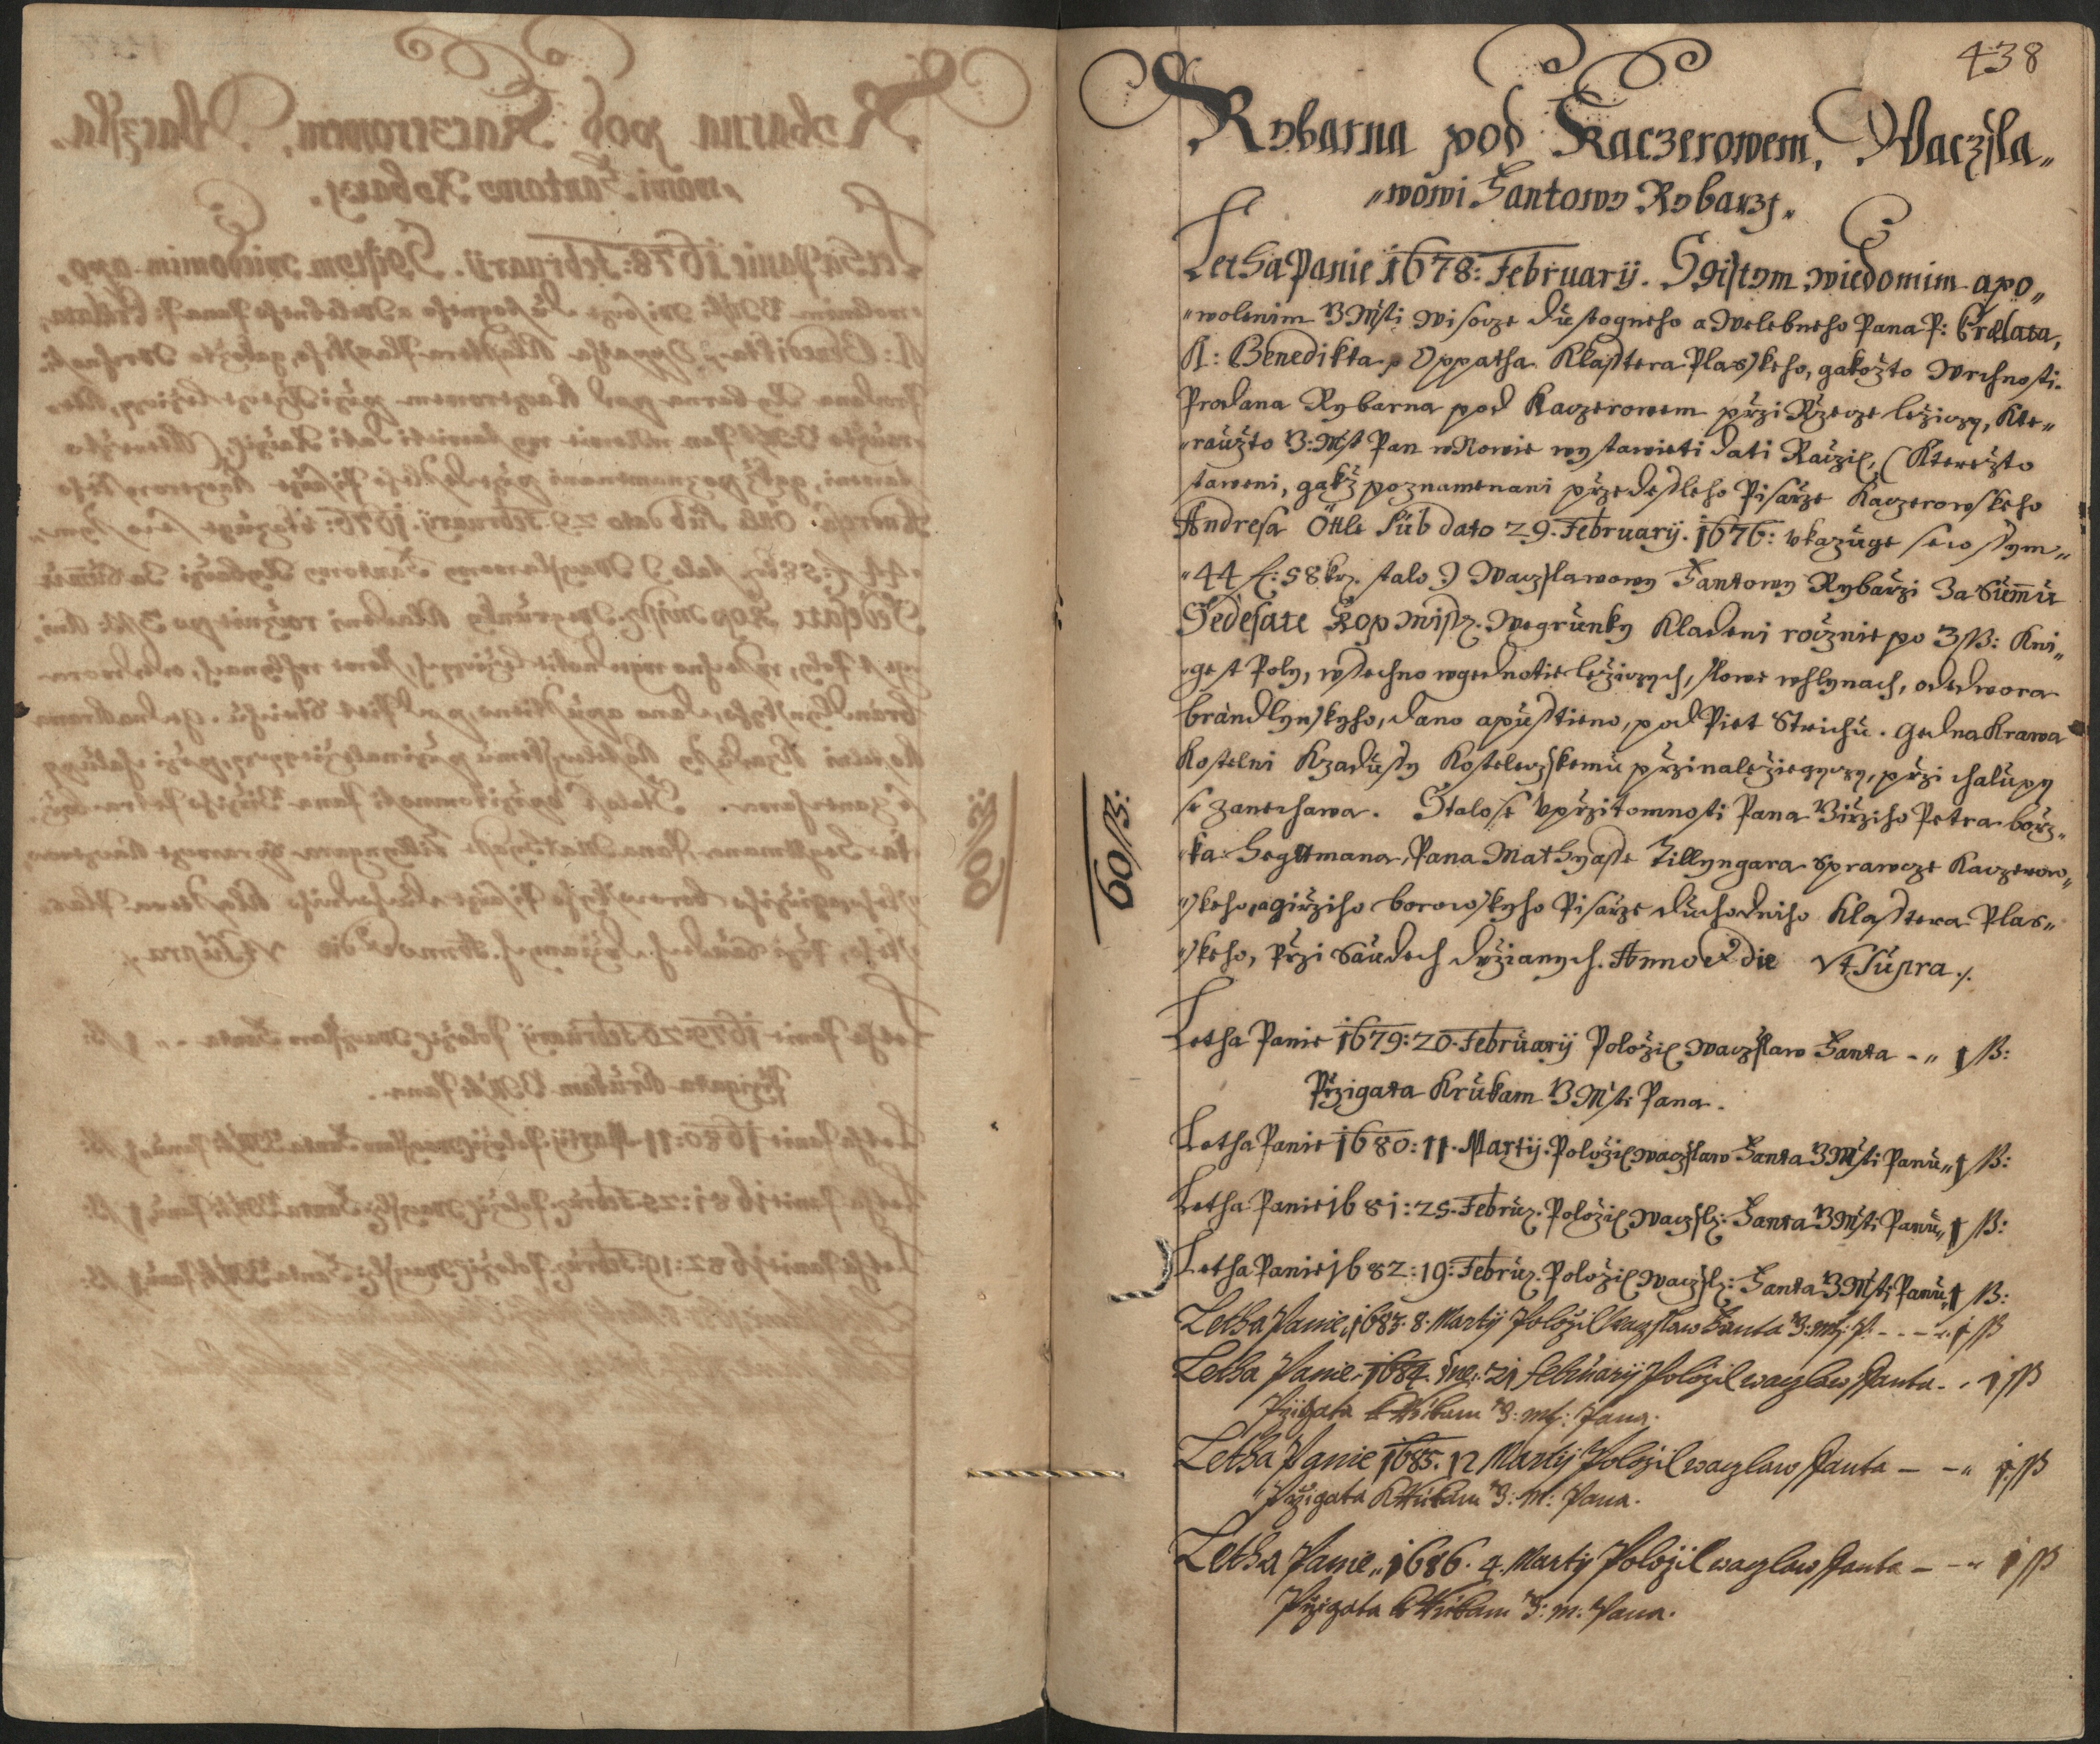 438
Rybarna pod Kaczerowem, Waczsla„
„wowi Santowy Rybarzi„
Letha Panie 1678: Februarij. Sgistym wiedomim a po„
„wolenim V Msti wisocze dustogneho a Welebneho Pana P: Prælata,
A: Benedikta Oppatha Klasstera Plasskeho, gakožto Wrchnosti.
Prodana Rybarna pod Kaczerowem przi Rzecze ležiczy, Kte„
„raužto V: Mst Pan w Nowie wystawieti dati Raczil, (Kterežto
staweni, gakž poznamenani przedesleho Pisarže Kaczerowskeho
Andresa Öttle Sub dato 29. Februarij. 1676: vkazuge sewssym„
„44 f: 58 krz. stalo) Waczslawowy Santowy Rybarži Za Summu
Sedesate Kop Missz. Wegrunky Kladeni rocžnie po 3 ß: Kni„
„gest Poly, wssechno wgednotie ležiczych, slowe whlynach, ode dwora
brandlynskyho, dano a pusstieno, pod Piet Strichu. Gedna Krawa
Kostelni Kzadussy Kosteleczskemu przinaležiegyczy, przi chalupy
se zanechawa. Stalo se Vprzitomnosti Pana Girziho Petra borz„
„ka Hegttmana, Pana Mathyasse Zillyngara Sprawcze Kaczerow„
„skeho, a Girziho borowskyho Pisarže duchodniho Klasstera Plas„
„skeho, Przi Saudech držianych. Anno et die Vt Supra ./.
60 ß:
Letha Panie 1679: 20. Februarij Položil Waczslaw Santa - „ 1 ß:
Przigata k rukam V Msti Pana.
Letha Panie 1680: 11. Martij. Položil Waczslaw Santa V Msti Panu „ 1 ß:
Letha Panie 1681: 25. Februz. Položil Waczslz: Santa V Msti Panu „ 1 ß:
Letha Panie 1682: 19: Februz. Položil Waczslz: Santa V Msti Panu „ 1 ß:
Letha Panie, 1683. 8. Martij Položil Waczslaw Santa V: Mti: P. - - - „ 1 ß
Letha Panie. 1684. Dne. 21 februarij Položil waczlaw Santa - . 1 ß
Przigata k Rukam V: mt: Pana.
Letha Panie 1685. 12 Martij Položil waczlaw Santa - - „ 1 ß
Przigata k Rukam V: M: Pana.
Letha Panie „ 1686. 4. Martij Položil waczlaw Santa - - „ 1 ß
Przigata k Rukam V: m. Pana.